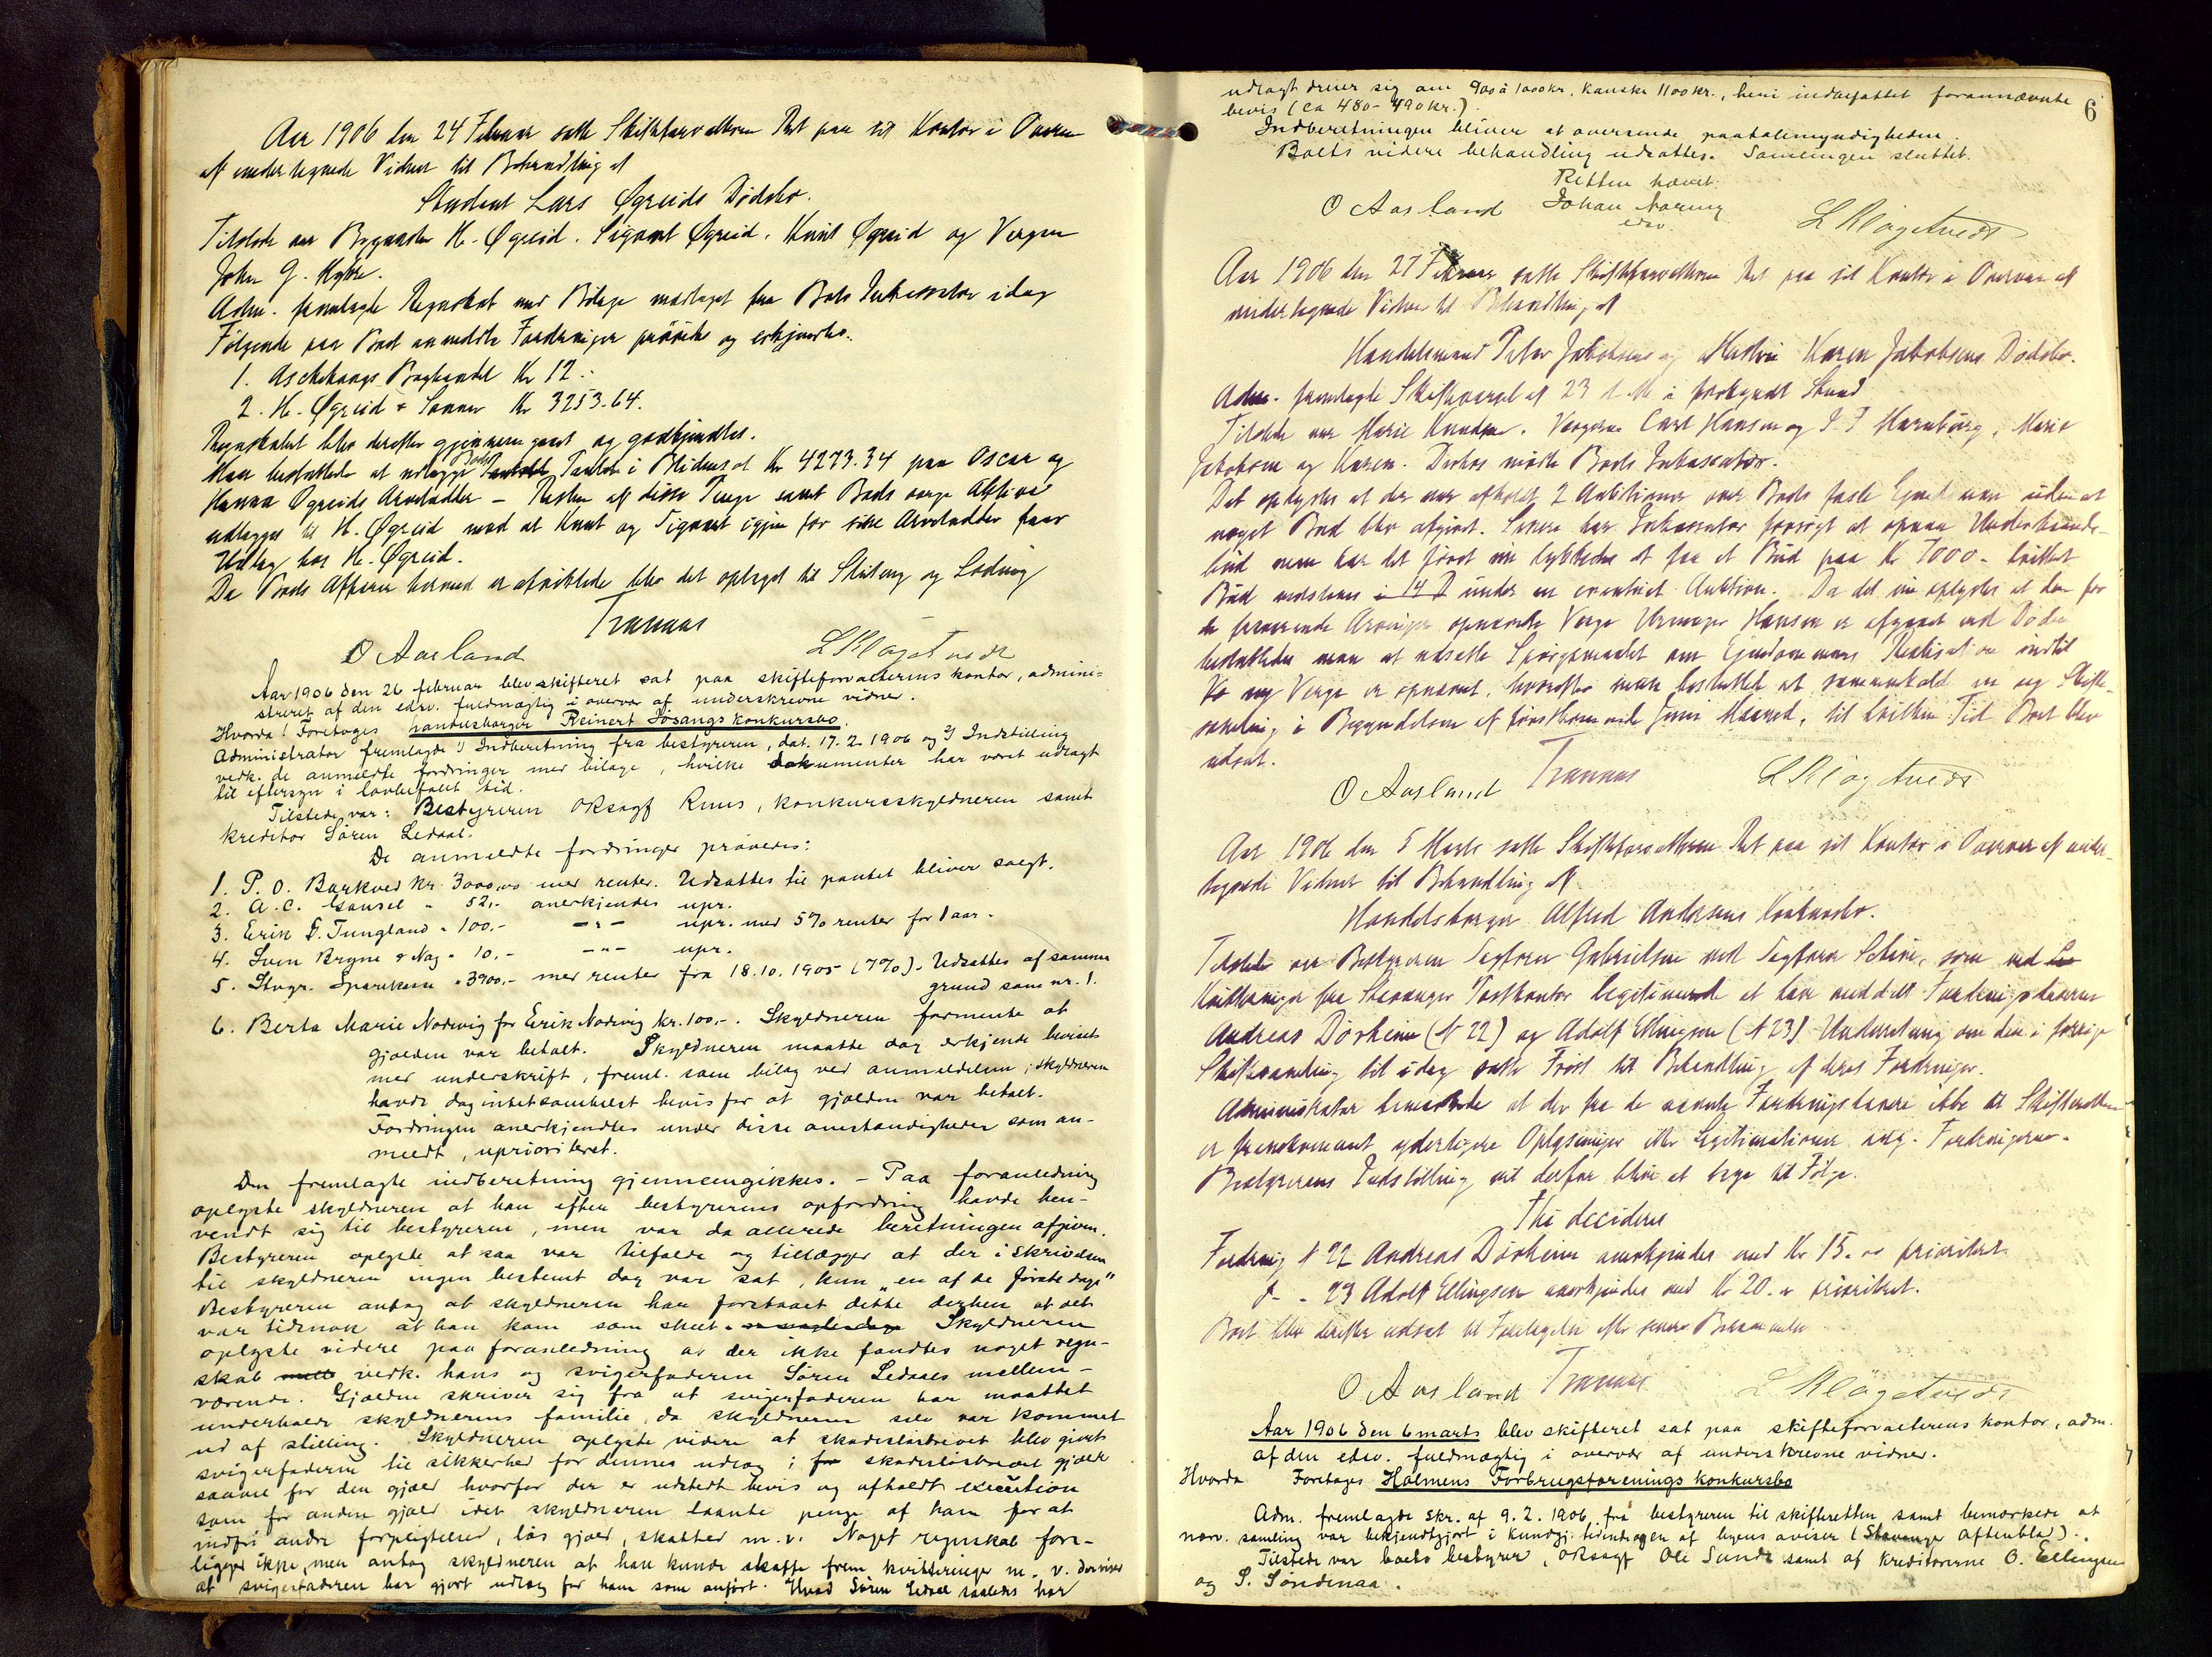 Aar 1906 den 24 Februar satte Skifteforvalteren Ret paa sit Kontor i Overvær
af undertegnede Vidner til Behandling af
Student Lars Øgreids Dødsbo.
Tilstede var H. Øgreid. Sigvart Øgreid. Knut Øgreid og Vergen
John G.
Adm. fremlagde Regnskab med Bilage modtaget fra Boets Inkassator idag
Følgende paa Boet anmeldte Fordringer prøvedes og erkjendtes.
1. Aschehougs Boghandel Kr 12.-
2. H. Øgreid & Sønner Kr 3253.64.
Regnskabet blev derefter gjennemgaaet og godkjendtes.
Man besluttede at udlægge Boets i Kr 4273.34 paa Oscar og
Hanna Øgreids Arvelodder - Resten af disse Penge samt Boets øvrige Aktiva
udlægges til H. Øgreid mod at Knut og Sigvart igjen for sine Arvelodder faar
Udlæg hos H. Øgreid.
Da Boets Affærer hermed er afviklede blev det optaget til Slutning og Lodning
Tranaas
O Aasland L Kløgetvedt
Aar 1906 den 26 februar blev skifteret sat paa skifteforvalterens kontor, admini-
streret af den edsv. fuldmægtig i overvær af underskrevne vidner.
Hvorda! Foretoges handelsborger Reinert Jøsangs konkursbo.
Administrator fremlagde 1) Indberetning fra bestyreren, dat. 17.2.1906 og 2) Indstilling
vedk. de anmeldte fordringer med bilage, hvilke dokumenter har været udlagt
til eftersyn i lovbefalet tid.
Tilstede var: Bestyreren oRsagf Ruus, konkursskyldneren samt
kreditor Søren Ledaal.
De anmeldte fordringer prøvedes:
1. P. O. Barkved kr. 3000,00 med renter. Udsattes til pantet bliver solgt.
2. A. C. Gausel " 52,- anerkjendes upr.
3. Erik G. Tungland " 100,- -"- upr. med 5% renter for 1 aar.
4. Sven Bryne & Nag " 10,- -"- upr.
5. Stvgr. Sparekasse " 3900,- med renter fra 18.10.1905 (7%). Udsattes af samme
grund som nr. 1.
6. Berta Marie Nordvig for Erik Nordvig kr. 100,-. Skyldneren formente at
gjælden var betalt. Skyldneren maatte dog erkjende beviset
med underskrift, freml. som bilag ved anmeldelsen; skyldneren
havde dog intetsomhelst bevis for at gjælden var betalt.
Fordringen anerkjendtes under disse omstændigheder som an-
meldt, uprioriteret.
Den fremlagte indberetning gjennemgikkes. - Paa foranledning
oplyste skyldneren at han efter bestyrerens opfordring havde hen-
vendt sig til bestyreren, men var da allerede beretningen afgiven.
Bestyreren oplyste at saa var tilfælde og tillægger at der i skrivelsen
til skyldneren ingen bestemt dag var sat, kun "en af de første dage"
Bestyreren antog at skyldneren har forstaaet dette derhen at det
var tidsnok at han kom som skeet. Skyldneren
oplyste videre paa foranledning av der ikke fandtes noget regn-
skab vedk. hans og svigerfaderen Søren Ledaals mellem-
værende. Gjælden skriver sig fra at svigerfaderen har maattet
underholde skyldnerens familie, da skyldneren selv var kommet
ud af stilling. Skyldneren oplyste videre at skadesløsbrevet blev givet
svigerfaderen til sikkerhed for dennes udlæg; for skadesløsbrevet gjælder
saavel for den gjæld hvorfor der er udstedt bevis og afholdt execution
som for anden gjæld idet skyldneren laante penge af ham for at
indfri andre forpligtelser, løs gjæld, skatter m.v. Noget regnskab fore-
ligger ikke, men antog skyldneren at han kunde skaffe frem kvitteringer m. v. der viser
at svigerfaderen har gjort udlæg for ham som anført. Hvad Søren Ledaal saaledes har
6
udlagt dreier sig om 900 à 1000 kr, kanske 1100 kr., heri indbefattet forannævnte
bevis (ca 480- 490 kr.).
Indberetningen bliver at oversende paatalemyndigheden.
Boets videre behandling udsattes. Samlingen sluttet.
Retten hævet.
O Aasland Johan Noring L Kløgetvedt
edsv.
Aar 1906 den 27 Februar satte Skifteforvalteren Ret paa sit Kontor i Overvær af
undertegnede Vidner til Behandling af
Handelsmand Peter Jakobsens og Hustru Karen Jakobsens Dødsbo.
Adm. fremlagte Skiftevarsel af 23 d. M. i forkyndt Stand
Tilstede var Marie Knudsen. Vergerne Carl Hansen og Marie
Jakobsen og Karen. Derhos mødte Boets Inkassator.
Det oplystes at der var afholdt 2 Auktioner over Boets faste Eiendomme uden at
noget Bud blev afgivet. Senere har Inkassator forsøgt at opnaa Underhaands-
bud men har det først nu lykkedes at faa et Bud paa Kr 7000.- hvilket
Bud vedstaaes i 14 D under en eventuel Auktion. Da det nu oplystes at den for
de fraværende Arvinger opnævnte Verge Urmager Hansen er afgaaet ved Døden
besluttedes man at udsætte Spørgsmaalet om Eiendommens Realisation indtil
ny Verge er opnævnt, hvorefter man besluttet at sammenkalde en ny Skifte-
samling i Begyndelsen af førstkommende Juni Maaned, til hvilken Tid Boet blev
udsat.
O Aasland Tranaas L Kløgetvedt
Aar 1906 den 5 Marts satte Skifteforvalteren Ret paa sit Kontor i Overvær af under-
tegnede Vidner til Behandling af
Handelsborger Alfred Andersens Konkursbo.
Tilstede var Bestyreren Sagfører Gabrielsen ved Sagfører Scheie, som ved
Kvitteringer fra Stavanger Postkontor legitimerede at have meddelt Fordringshaverne
Andreas Dörheim (N 22) og Adolf Ellingsen (N 23) Underretning om den i forrige
Skiftesamling til idag satte Frist til Behandling af deres Fordringer.
Administrator bemærkede at der fra de nævnte Fordringshavere ikke til Skifteretten
er fremkommet yderligere Oplysninger eller Legitimationer ang. Fordringerne.
Bestyrerens Indstilling vil derfor blive at tage til Følge.
Thi decideres
Fordring N 22 Andreas Dörheim anerkjendes med Kr 15.00 prioritet.
d- " 23 Adolf Ellingsen anerkjendes med Kr 20.00 prioritet.
Boet blev derefter udsat til Foretagelse efter senere
O Aasland Tranaas L Kløgetvedt
Aar 1906 den 6 marts blev skifteret sat paa skifteforvalterens kontor, adm.
af den edsv. fuldmægtig i overvær af underskrevne vidner.
Hvorda Foretoges Holmens Forbrugsforenings konkursbo
Adm. fremlagde skr. af 9.2.1906 fra bestyreren til skifteretten samt bemærkede at
nærv. samling var bekjendtgjort i kundgj. tidende og en af byens aviser (Stavanger Aftenblad).
Tilstede var boets bestyrer, oRsagf Ole Sunde samt af kreditorerne O. Ellingsen
og S. Søndenaa.